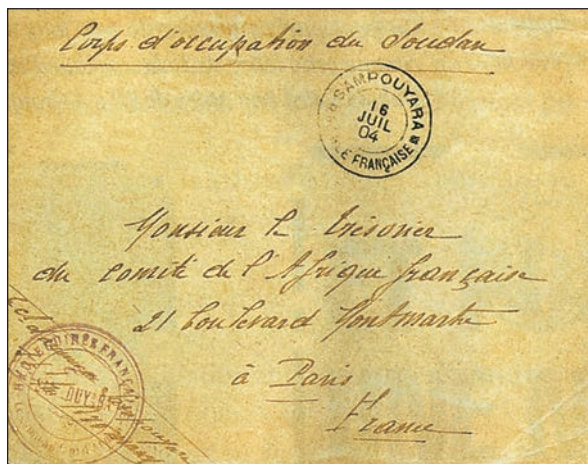 Corps d'occupation du Soudan
SAMPOUYARA
16
JUIL
04
LE FRANÇAISE
Monsieur le Trésorier
du Comité de l'Afrique française
21 boulevard Montmartre
à Paris
France